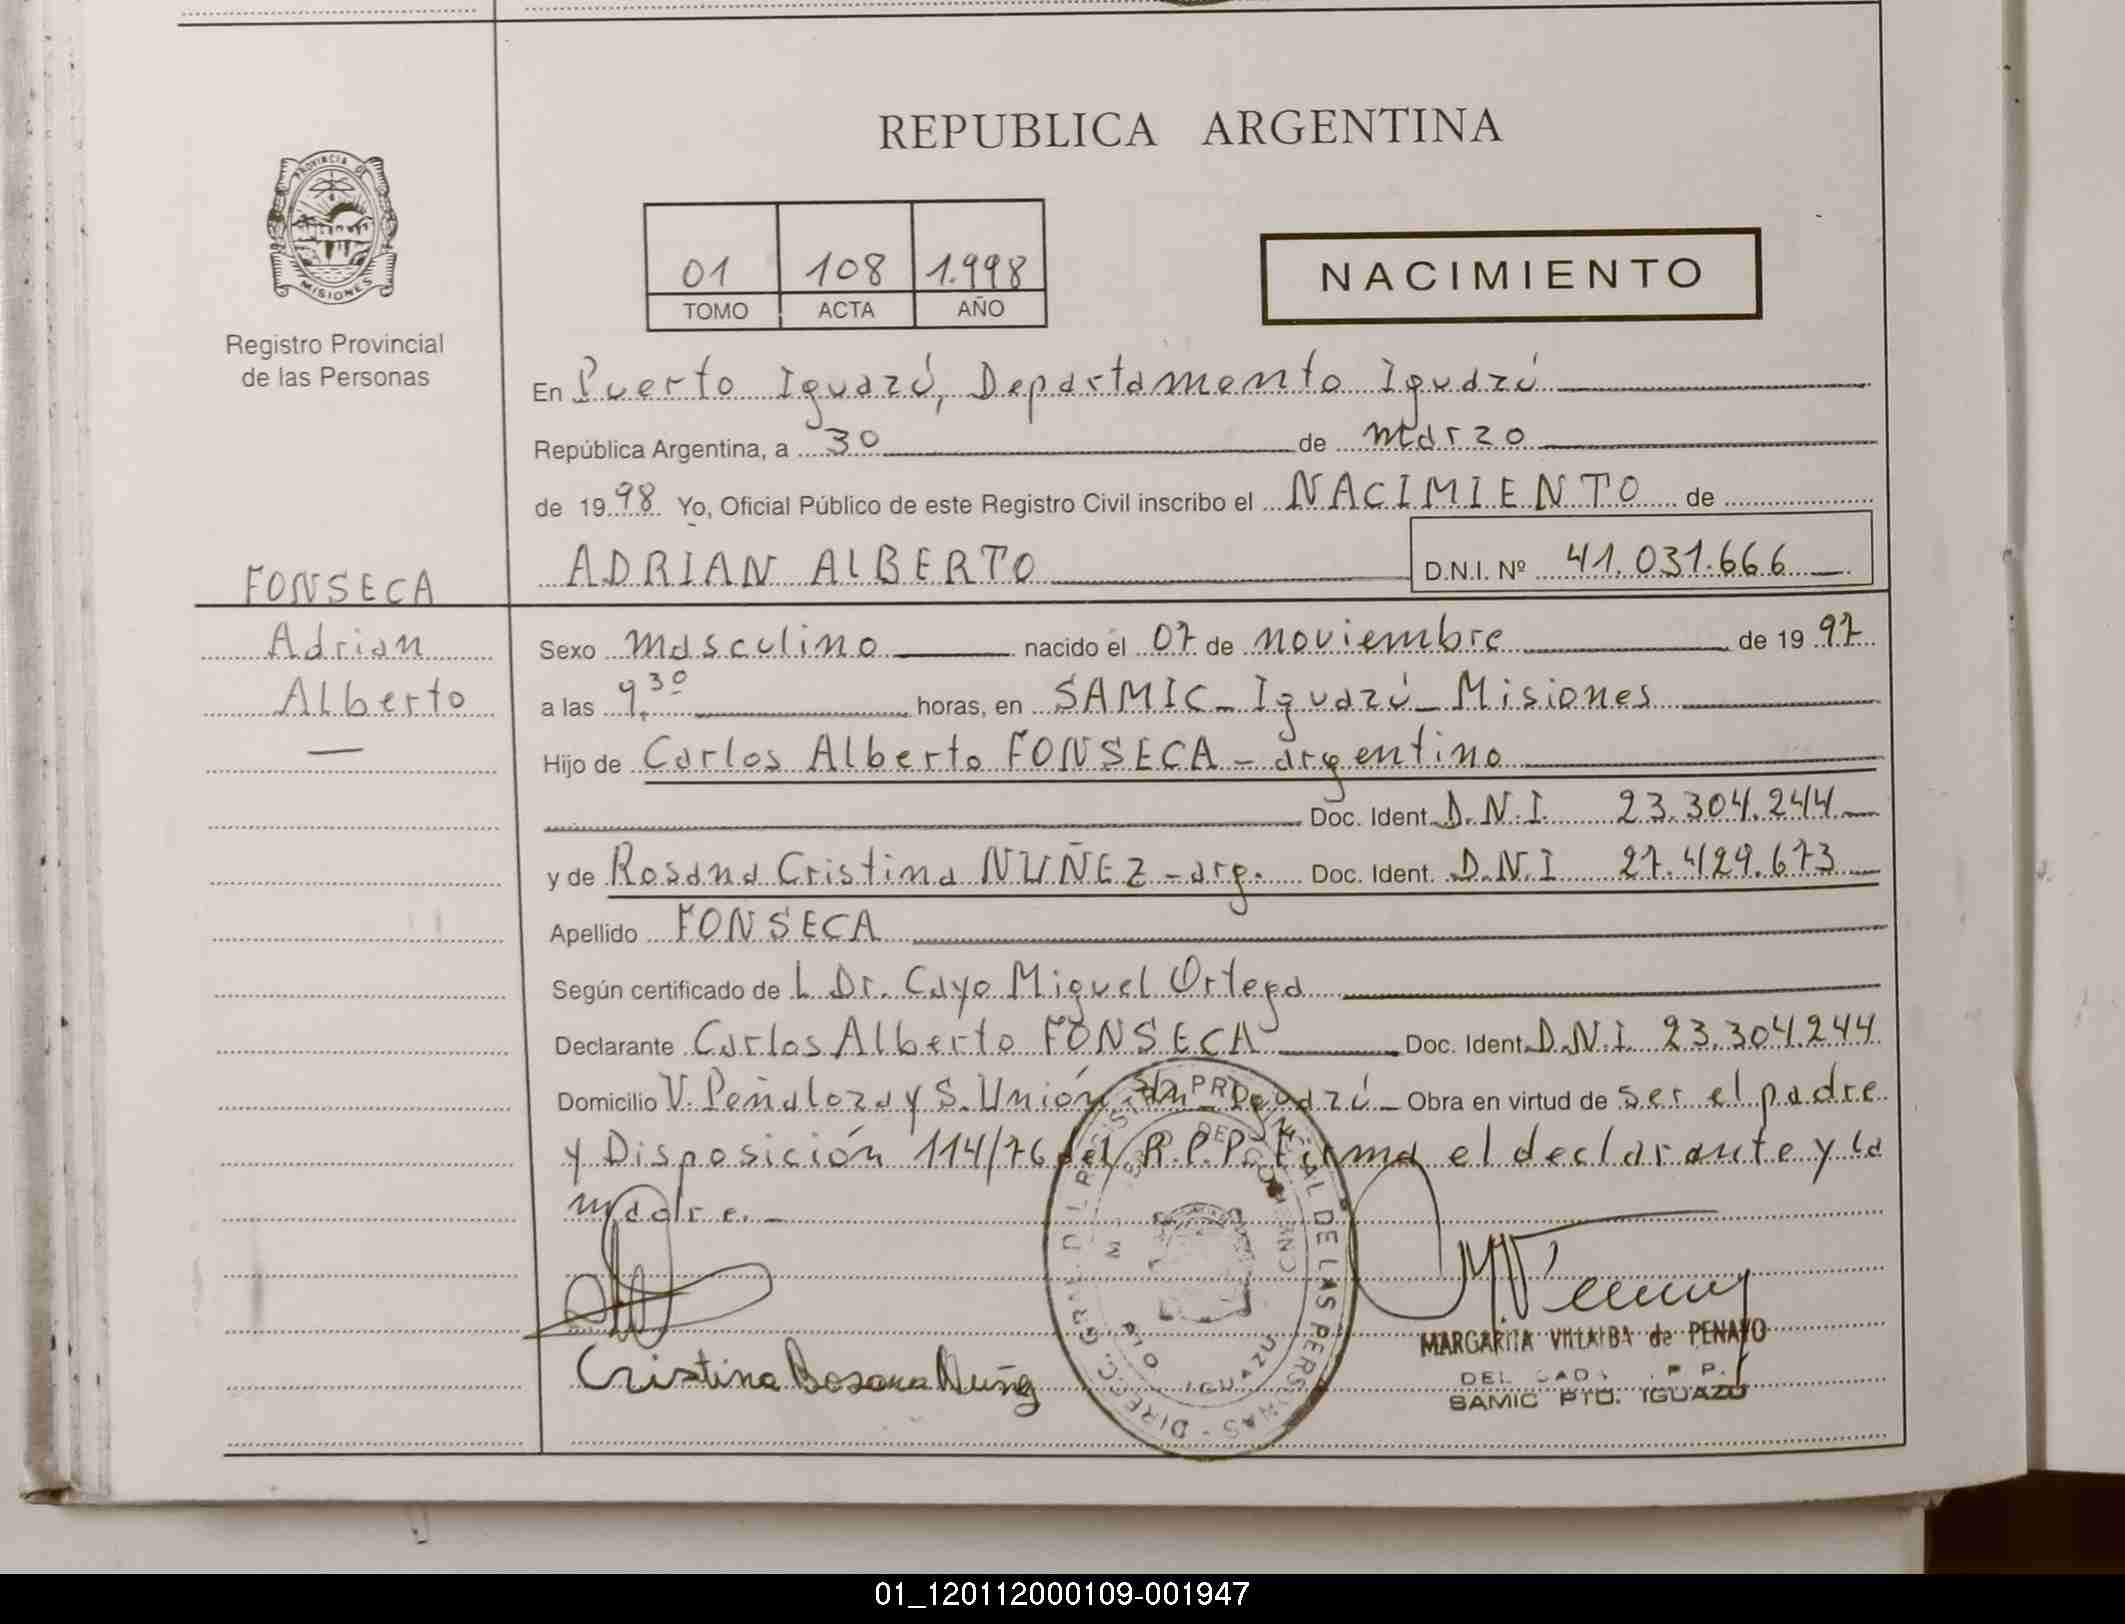 REPUBLICA ARGENTINA
PROVINCIA DE
MISIONES
Registro Provincial
de las Personas
01 108 1.998
TOMO ACTA AÑO
NACIMIENTO
En Puerto Iguazú, Departamento Iguazú
República Argentina, a 30 de marzo
de 19 98 Yo, Oficial Público de este Registro Civil inscribo el NACIMIENTO de
FONSECA
ADRIAN ALBERTO D.N.I. Nº 41.031.666
Adrian
Alberto
Sexo masculino nacido el 07 de noviembre de 19 97
a las 9.30 horas, en SAMIC - Iguazú - Misiones
Hijo de Carlos Alberto FONSECA - argentino
Doc. Ident. D.N.I. 23.304.244
y de Rosana Cristina NUÑEZ - arg. Doc. Ident. D.N.I 27.429.673
Apellido FONSECA
Según certificado de L Dr. Cayo Miguel Ortega
Declarante Carlos Alberto FONSECA Doc. Ident. D.N.I. 23.304.244
Domicilio V. Peñaloza y S. Unión s/n - Iguazú - Obra en virtud de ser el padre
y Disposición 114/76 del R.P.P. Firma el declarante y la
madre. -
DIRECC. GRAL. DEL REGIST. PROVINCIAL DE LAS PERSONAS
PTO IGUAZU
Cristina Rosana Nuñez
MARGARITA VILLALBA de PENAYO
SAMIC PTO. IGUAZU
01_120112000109-001947